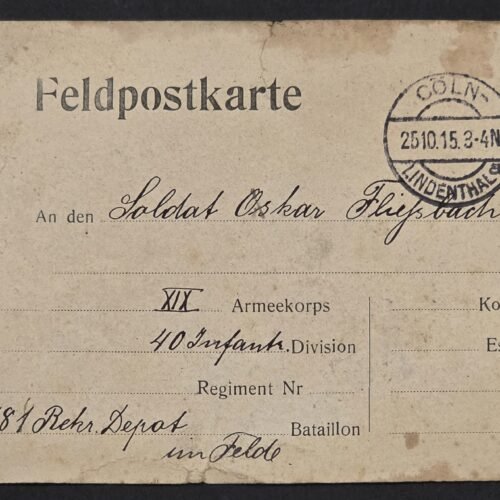 Feldpostkarte
CÖLN-
25.10.15. 3-4N
LINDENTHAL
An den Soldat Oskar Fliessbach
XIX Armeekorps
40 Infantr. Division
Regiment Nr
81 Rekr. Depot Bataillon
im Felde
Ko
Es